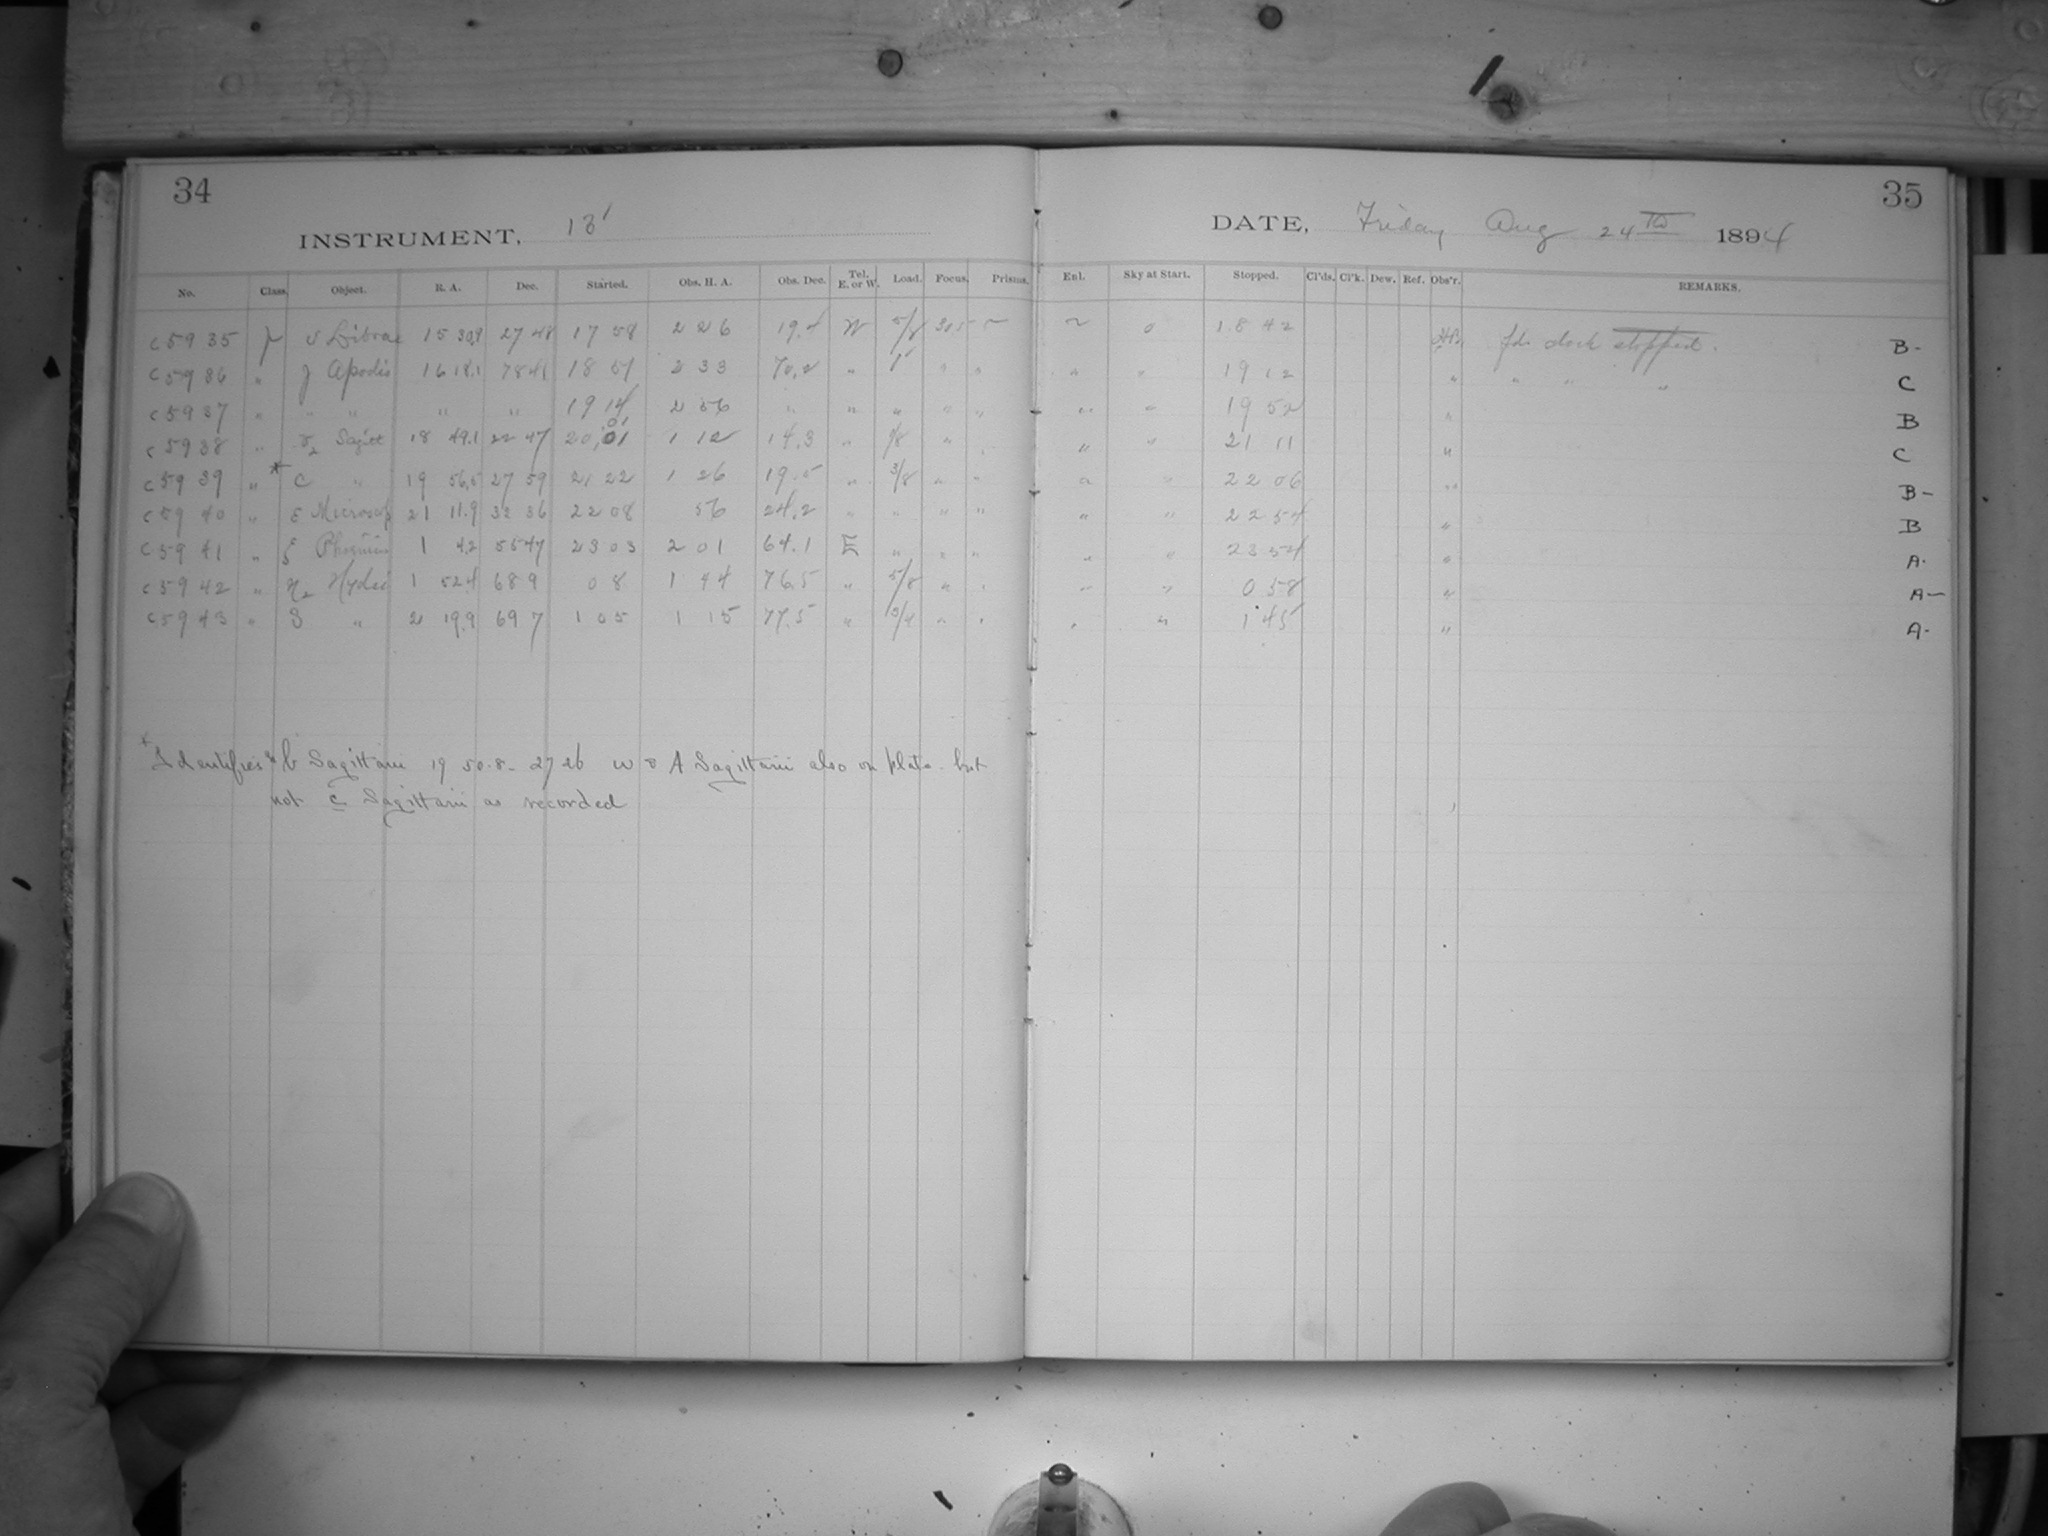 34
INSTRUMENT, 13'
No. Class. Object. R. A. Dec. Started. Obs. H. A. Obs. Dec. Tel. E. or W. Load. Focus. Prisms.
c5935 υ Librae 15 30.9 27 48 17 58 2 26 19.4 W 5/8
c5936 " γ Apodis 16 18.1 78 41 18 51 2 33 70.2 " 1' " "
c5937 " " " " " 19 14 2 56 " " " " "
c5938 " Sagitt 18 49.1 22 47 20,01 1 12 14.3 " "
c5939 " * c " 19 56.5 27 59 21 22 1 26 19.5 " 3/8 " "
c5940 " ε Microscop 21 11.9 32 36 22 08 56 24.2 " " " "
c5941 " ξ 1 4.2 55 47 23 03 2 01 64.1 E " " "
c5942 " η2 Hydri 1 52.4 68 9 0 8 1 44 76.5 " 5/8 " "
c5943 " " 2 19.9 69 7 1 05 1 15 77.5 " 3/4 " "
*Identifies b Sagittarii 19 50.8 - 27 26 A Sagittarii also on plate - but
not c Sagittarii as recorded
35
DATE, Friday Aug 24TH 1894
Enl. Sky at Start. Stopped. Cl'ds. Cl'k. Dew. Ref. Obs'r. REMARKS.
0 18 42 clock stopped. B-
" " 19 12 " " " " C
" " 19 52 " B
" " 21 11 " C
" " 22 06 " B-
" " 22 54 " B
" " 23 54 " A-
" " 0 58 " A-
" " 1 45 " A-